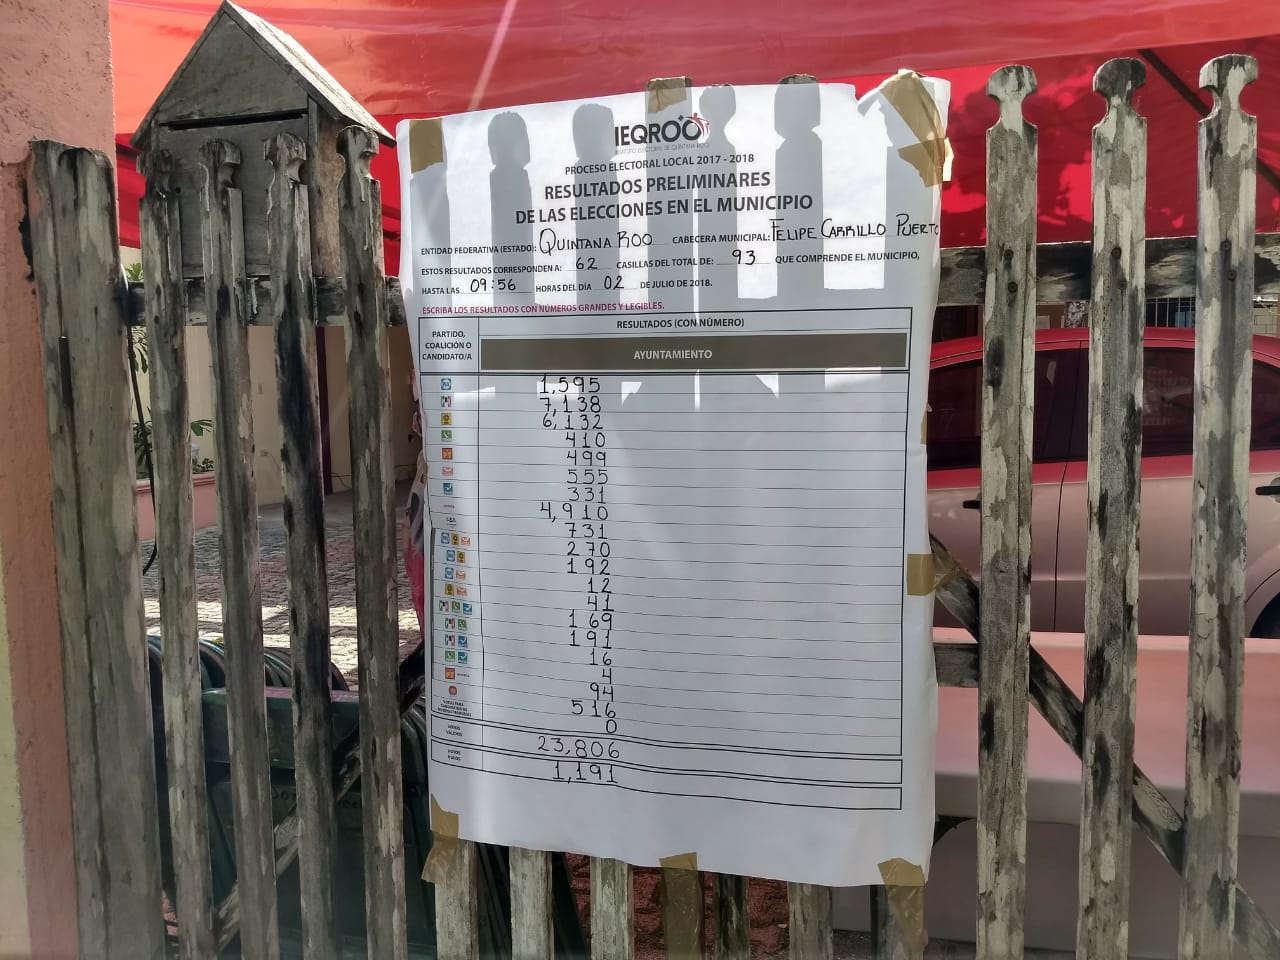 IEQROO
INSTITUTO ELECTORAL DE QUINTANA ROO
PROCESO ELECTORAL LOCAL 2017 - 2018
RESULTADOS PRELIMINARES
DE LAS ELECCIONES EN EL MUNICIPIO
ENTIDAD FEDERATIVA (ESTADO): QUINTANA ROO CABECERA MUNICIPAL: FELIPE CARRILLO PUERTO
ESTOS RESULTADOS CORRESPONDEN A: 62 CASILLAS DEL TOTAL DE: 93 QUE COMPRENDE EL MUNICIPIO,
HASTA LAS 09:56 HORAS DEL DÍA 02 DE JULIO DE 2018.
ESCRIBA LOS RESULTADOS CON NÚMEROS GRANDES Y LEGIBLES.
PARTIDO, COALICIÓN O CANDIDATO/A
RESULTADOS (CON NÚMERO)
AYUNTAMIENTO
1,595
7,138
6,132
410
499
555
331
4,910
731
270
192
12
41
169
191
16
4
94
516
0
23,806
1,191